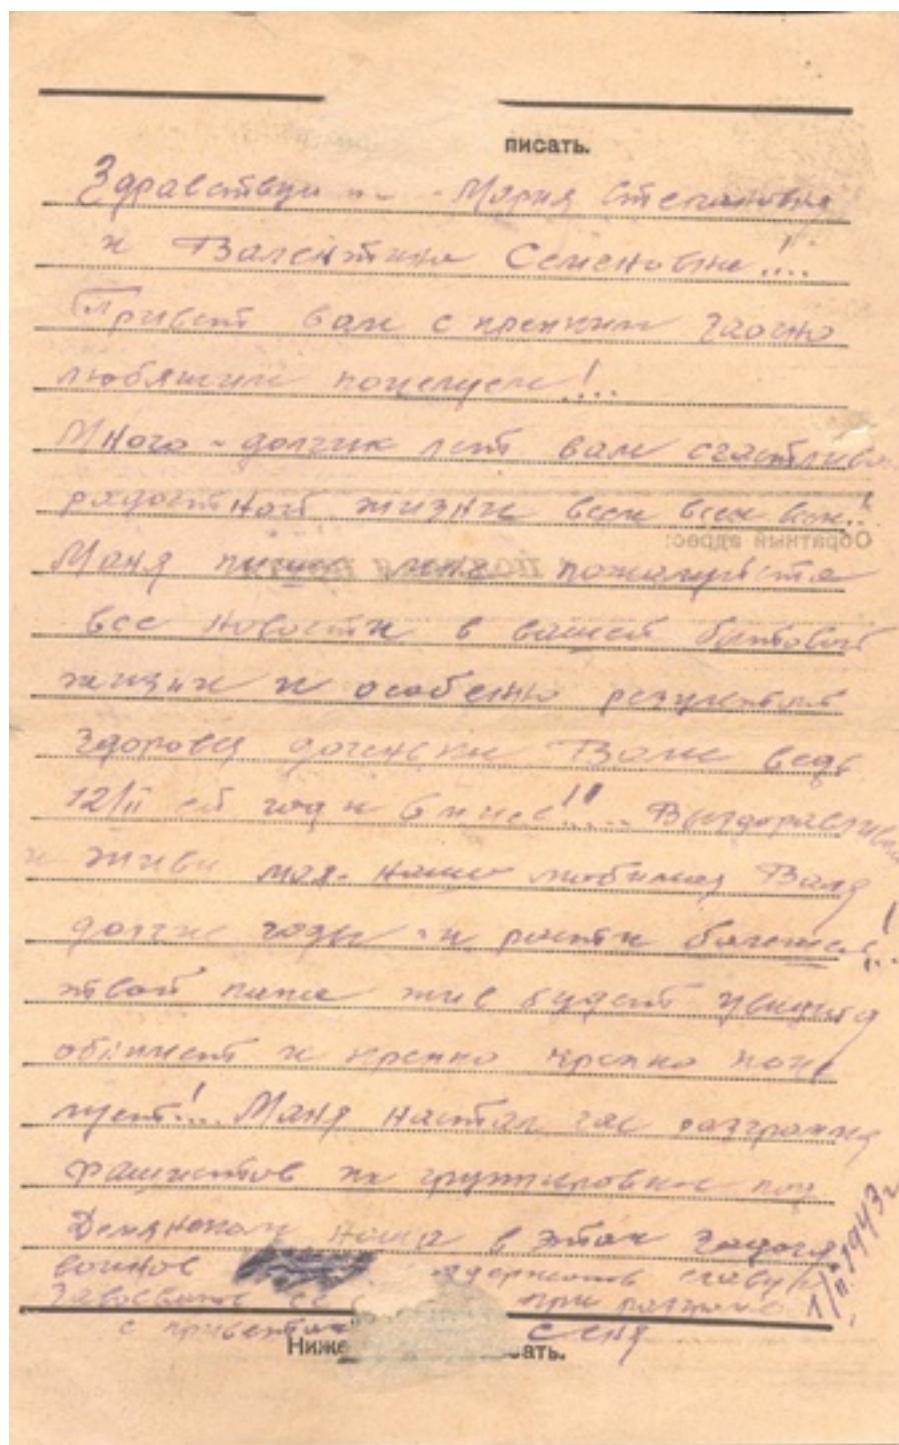 писать.
Здравствуй Мария Степановна
и Валентина Семеновна!..
Привет вам с крепким
любящим поцелуем!...
Много-долгих лет вам счастливо
радостной жизни всем всем вам..!
Маня пиши мне пожалуйста
все новости в вашей бытовой
жизни и особенно результат
здоровья доченьки Вали ведь
12/II ей год и 6 мисс!!.... Выздоравливай
и живи моя-наша любимая Валя
долгие годы и расти большая!..
твой папа жив будет увидится
обнимет и крепко крепко поце
лует!... Маня настал час разгрома
фашистов их группировки под
Демянском наша в этом задача
воинов одержать славу
завоевать при разгроме
с приветом Сеня
1/II. 1943 г
Обратный адрес:
Ниже писать.